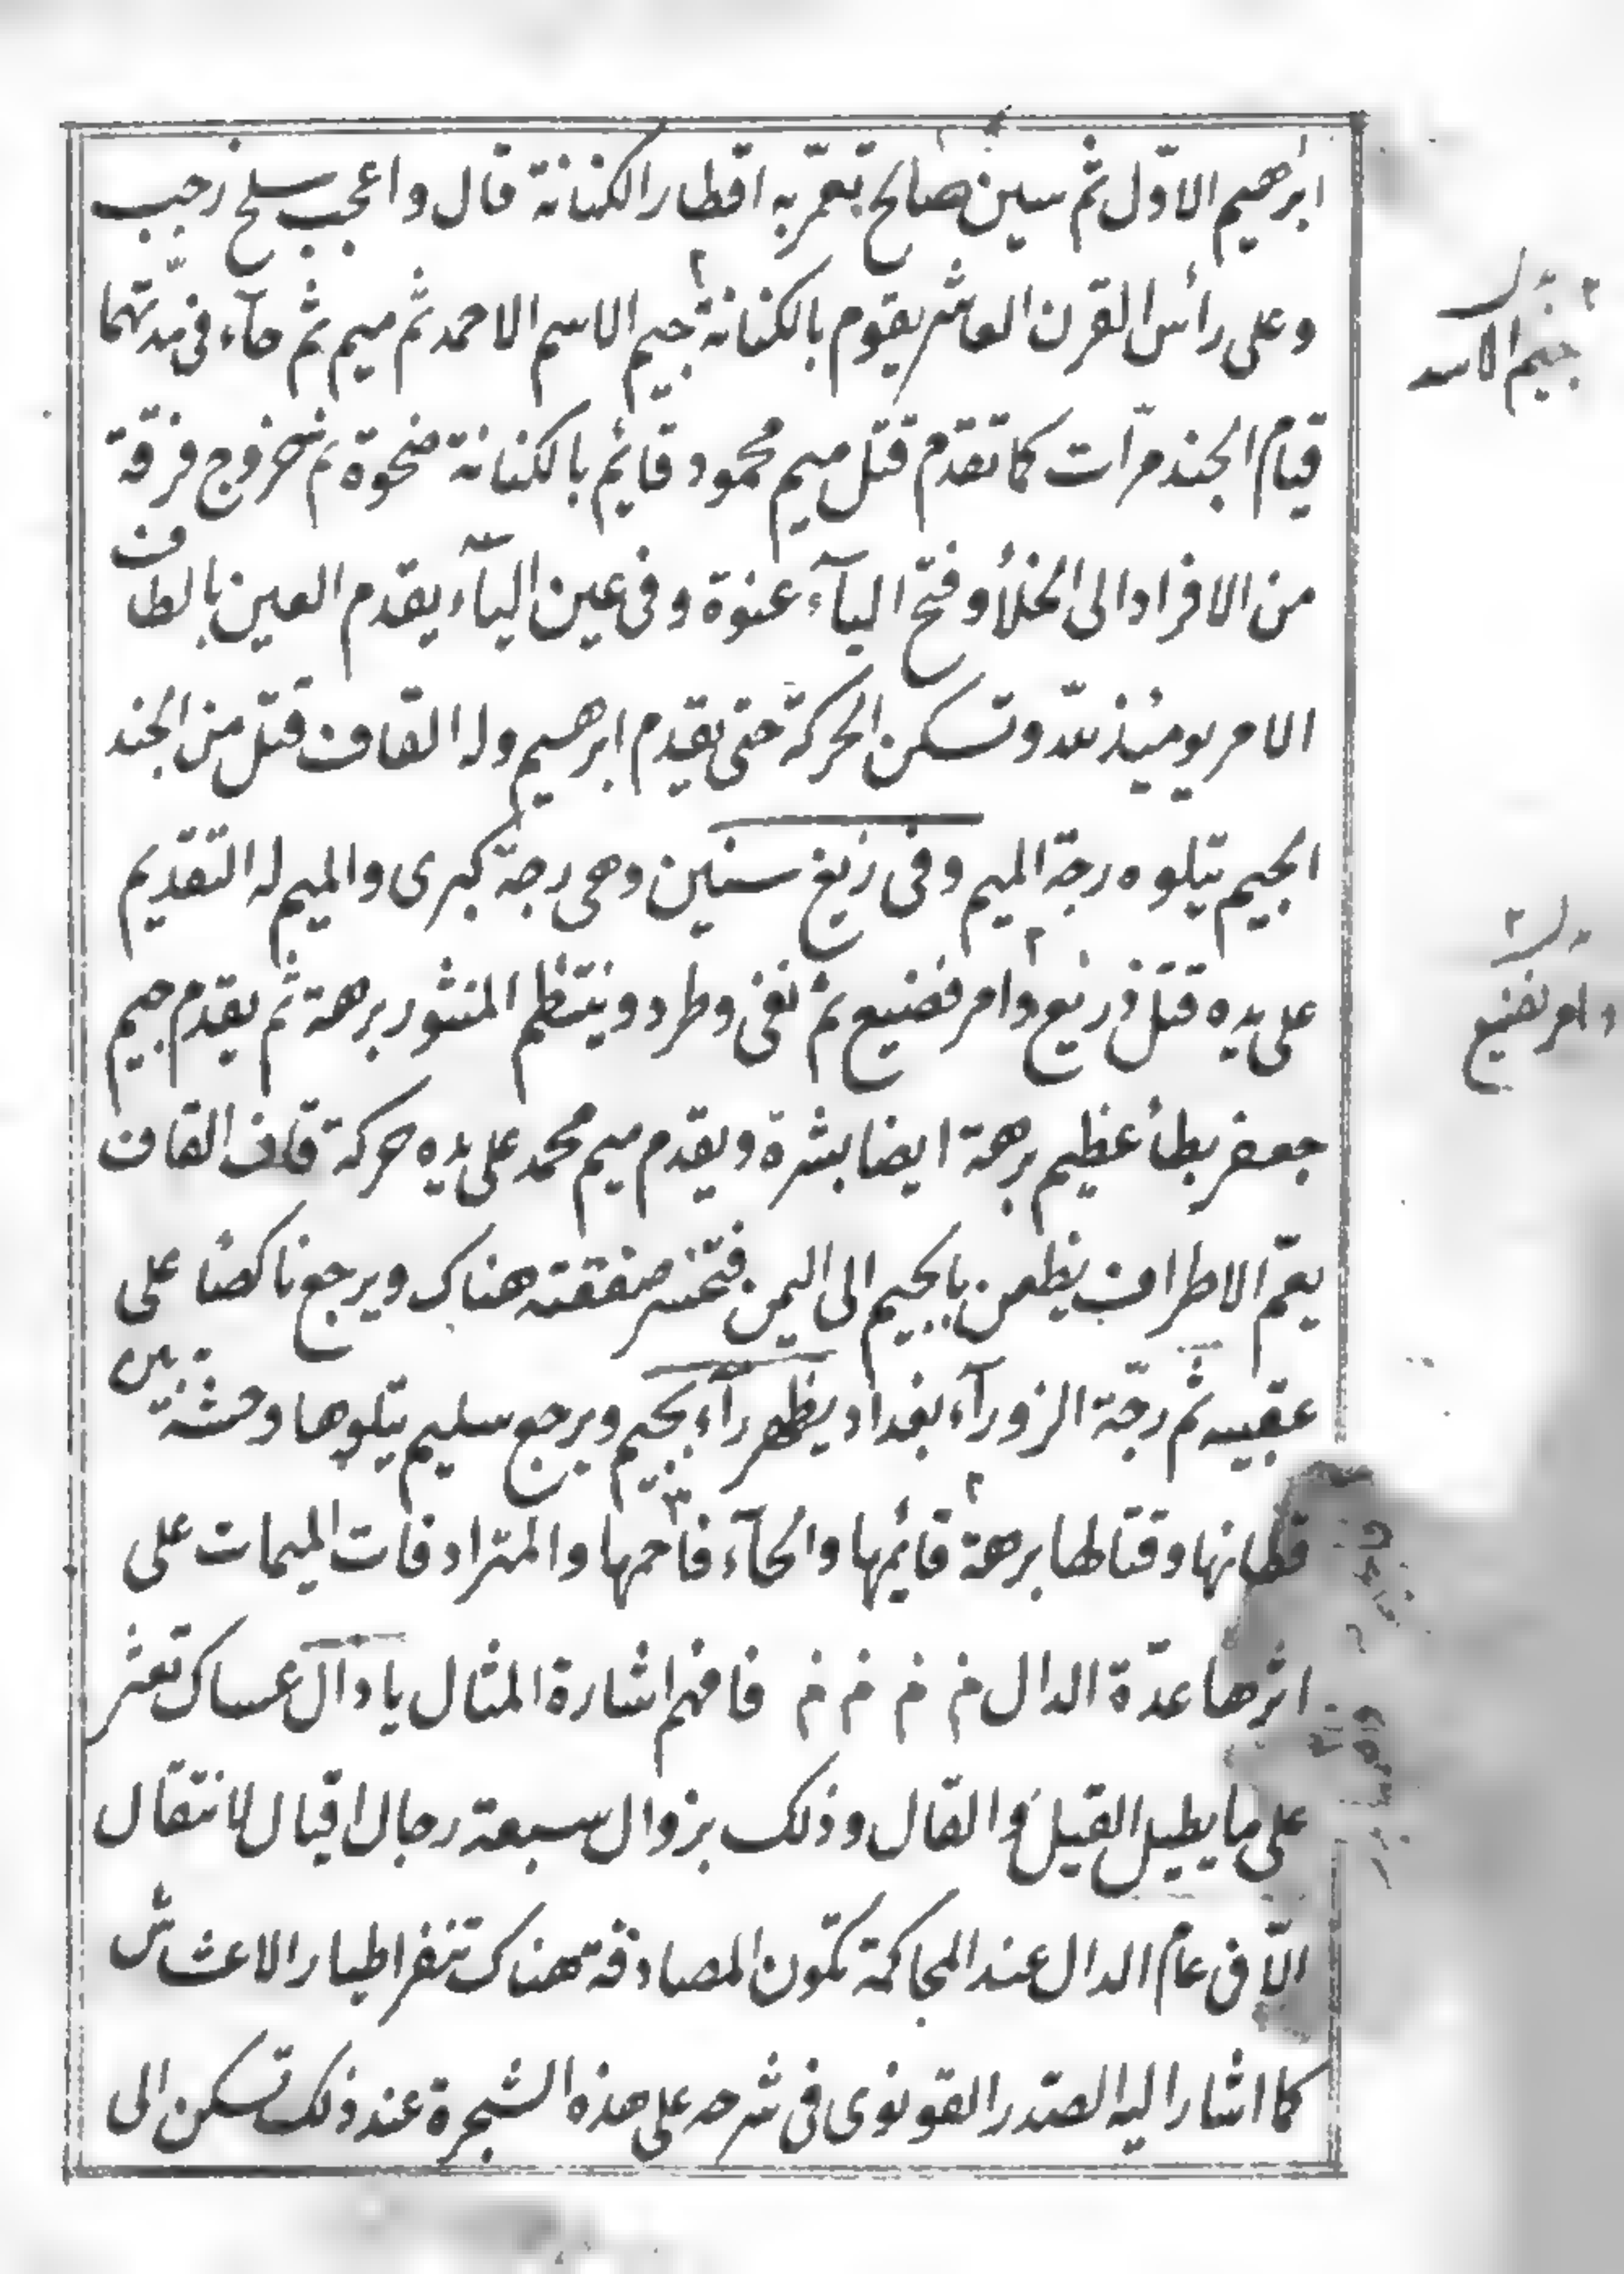 ابرهيم الاوّل ثم سين صالح تعمّر به اقطار الكنانة قال واعجب سلخ رجب
وعلى رأس القرن العاشر يقوم بالكنانة جيم الاسم الاحمد ثم ميم ثم حآء فى مدّتهما
قيام الجند مرّات كما تقدم قتل ميم محمود قايم بالكنانة ضحوة ثم خروج فرقة
من الافراد الى الخلأ وفتح اليآء عنوة وفى عين اليآء يقدم العين بالطاف
الامر يوميذ لله وتسكن الحركة حتى يقدم ابرهيم وله القاف قتل من الجند
الجيم يتلوه رجة الميم وفى زيغ سنين وهى رجة كبرى والميم له التقديم
على يده قتل ذريع وامر فضيع ثم نفى وطرد وينتظم المنثور برهة ثم يقدم جيم
جعفر بطأ عظيم برهة ايضا بشرة ويقدم ميم محمد على يده حركة قاف القاف
يعمّ الاطراف يظعن بالجيم الى اليمن فتخسر صفقته هناك ويرجع ناكصًا على
عقبيه ثم رجّة الزورآء بغداد يظهر رآء بجيم ويرجع سليم يتلوها وحشة بين
قطانها وقتالها برهة قايمها والحآء فاتحها والمترادفات الميمات على
اثرها عدّة الدال م م م م فافهم اشارة المثال يا دال عساك تعثر
على ما يطيل القيل والقال وذلك بزوال سبعة رجال اقيال لانتقال
الّا فى عام الدال عند المحاكمة تكون المصادفة هناك تنفر اطيار الاعشاش
كما اشار اليه الصّدر القونوى فى شرحه على هذه الشجرة عند ذلك تسكن الى
جيم الاسد
وامر نضيع